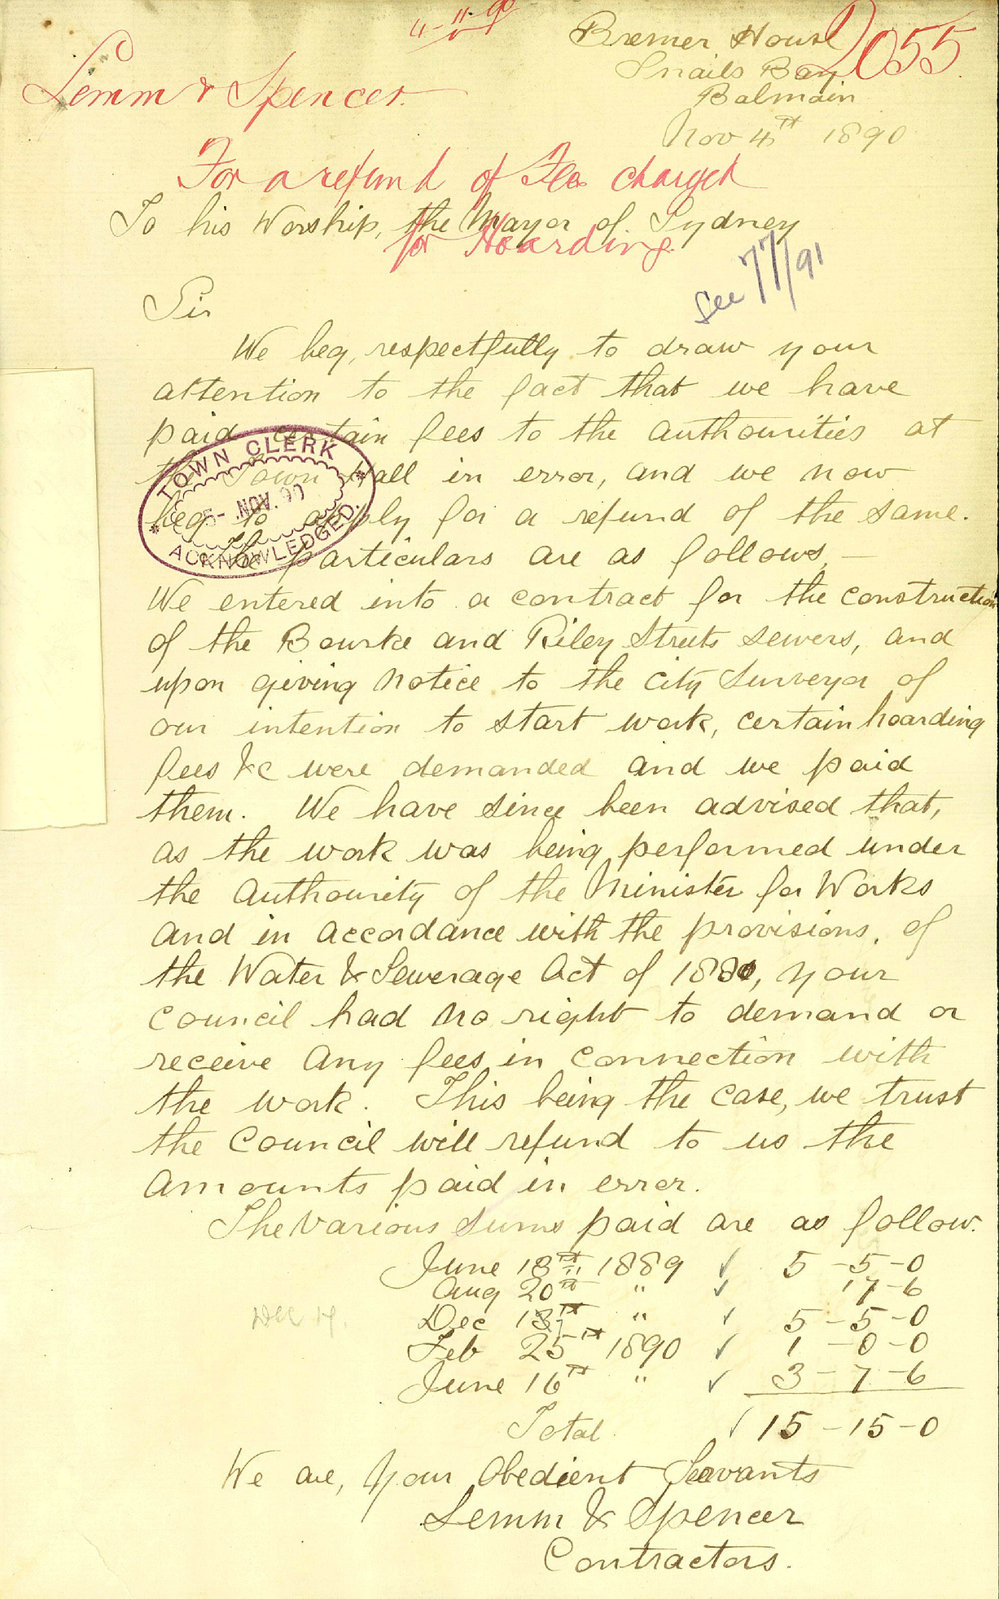 4-11-90
Bremer House 2055
Snails Bay
Balmain
Nov 4th 1890
Lemm & Spencer
For a refund of Fees charged
for Hoarding
To his Worship, the Mayor of Sydney
See 77/91
Sir
We beg, respectfully to draw your
attention to the fact that we have
paid certain fees to the authourities at
the Town Hall in error, and we now
beg to apply for a refund of the same.
TOWN CLERK
NOV. 90
ACKNOWLEDGED.
The particulars are as follows, —
We entered into a contract for the construction
of the Bourke and Riley Streets sewers, and
upon giving notice to the City Surveyor of
our intention to start work, certain hoarding
fees &c were demanded and we paid
them. We have since been advised that,
as the work was being performed under
the authourity of the Minister for Works
and in accordance with the provisions, of
the Water & Sewerage Act of 1880, your
Council had no right to demand or
receive any fees in connection with
the work. This being the case, we trust
the Council will refund to us the
amounts paid in error.
The various sums paid are as follow.
June 18th 1889 ✓ 5-5-0
Aug 20th " ✓ 17-6
Dec 17.
Dec 17th " ✓ 5-5-0
Feb 25th 1890 ✓ 1-0-0
June 16th " ✓ 3-7-6
Total ✓ 15-15-0
We are, Your Obedient Servants
Lemm & Spencer
Contractors.